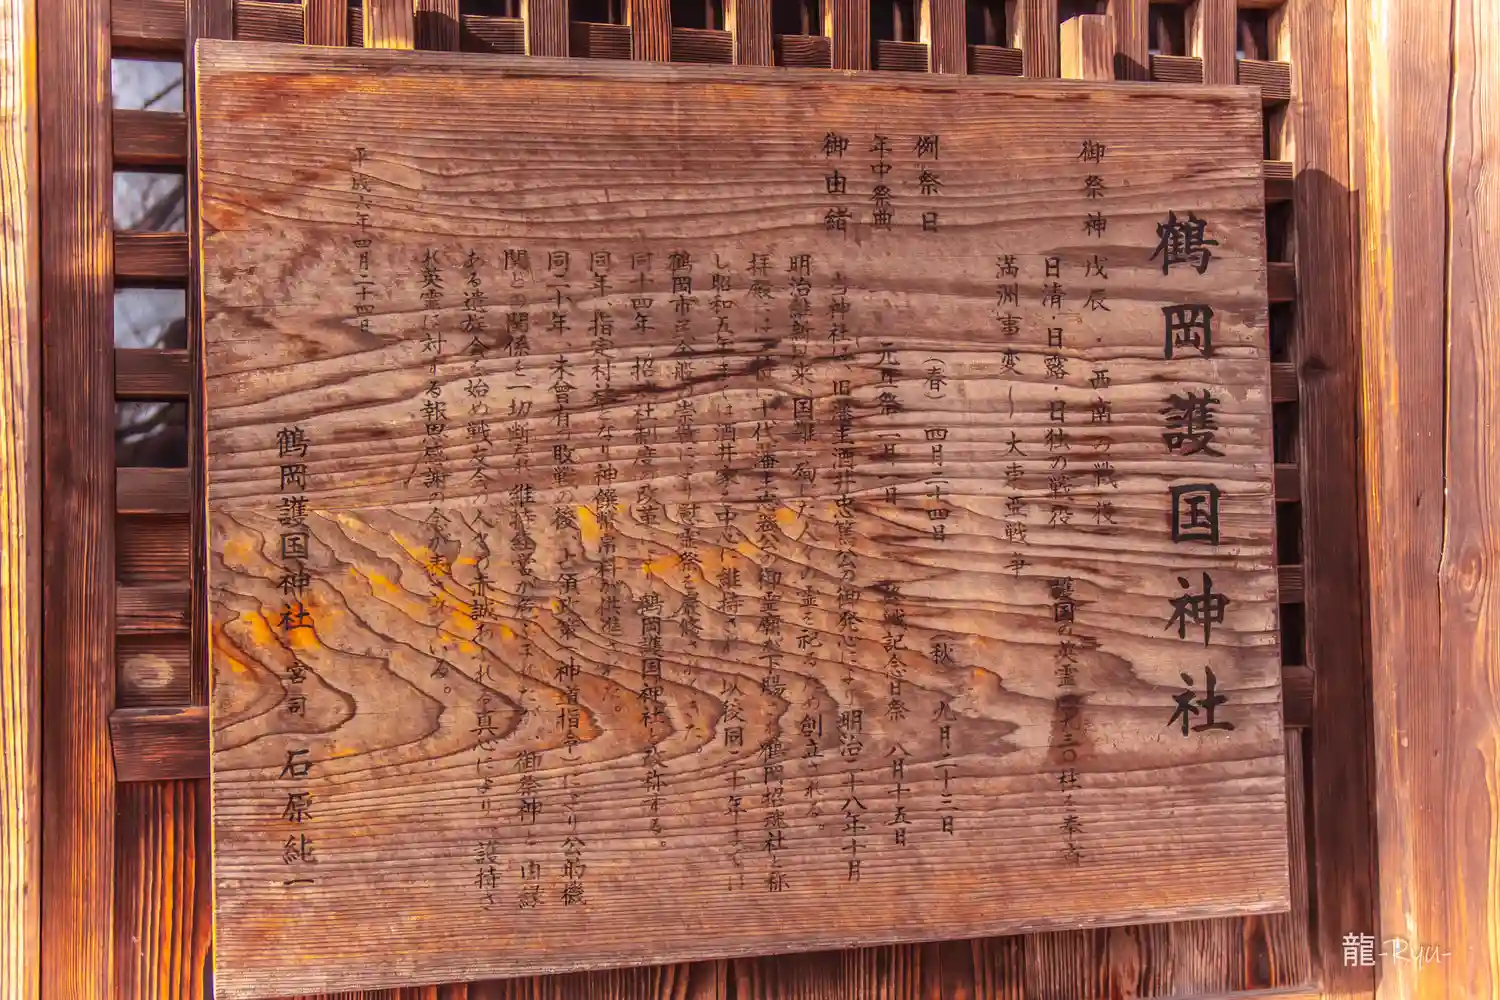 鶴岡護国神社
御祭神 戊辰・西南の戦役
日清・日露・日独の戦役 護国の英霊 九三〇柱を奉斎
満洲事変〜大東亜戦争
例祭日 (春) 四月二十四日 (秋) 九月二十三日
年中祭典 元旦祭 一月一日 終戦記念日祭 八月十五日
御由緒 当神社は、旧藩主酒井忠篤公の御発心により明治二十八年十月
明治維新以来、国難に殉した人々の霊を祀るため創立される。
拝殿は 十代藩主忠発公の御霊廟が下賜 鶴岡招魂社と称
し昭和五年までは酒井家を中心に護持され 以後同二十年までは
鶴岡市 公 崇 により慰霊祭を厳修された。
同十四年 招魂社制度の改革により 鶴岡護国神社と改称する。
同年、指定村社となり神饌幣帛料が供進された。
同二十年、未曾有の敗戦の後、占領政策(神道指令)により公的機
関との関係を一切断たれ維持経営が危ぶまれたが、御祭神と由縁
ある遺族会を始め戦友会の人々の赤誠あふれる真心により、護持さ
れ英霊に対する報恩感謝の念が いる。
平成六年四月二十四日
鶴岡護国神社 宮司 石原純一
龍-Ryu-